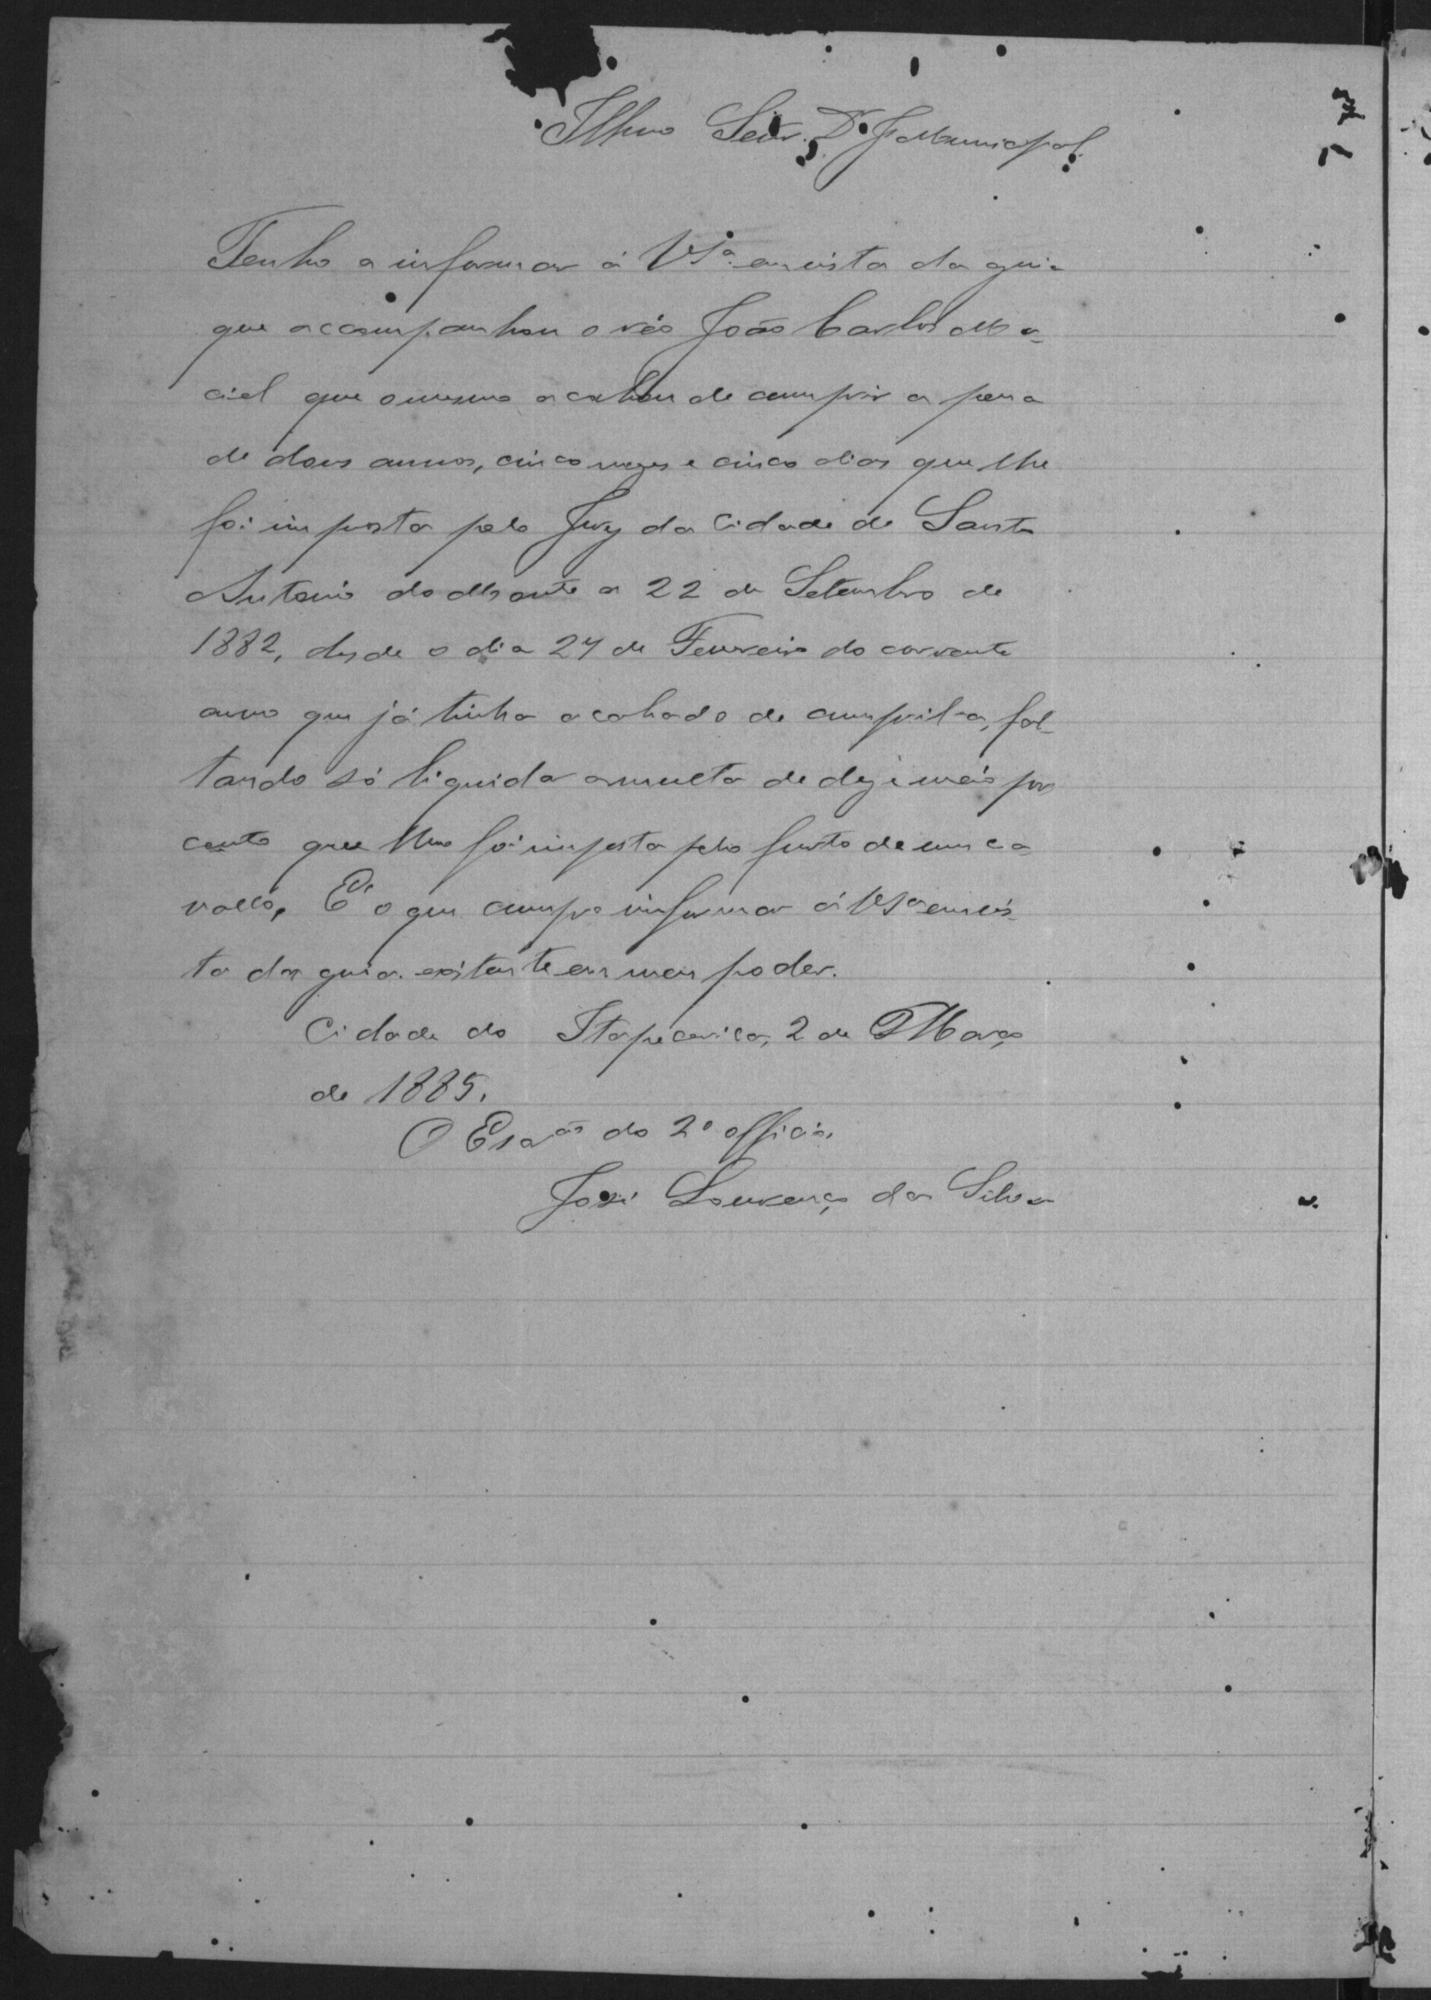 Illmo Senr. Dr. J. Municipal.
Tenho a informar á VSª em vista da guia
que acompanhou o réo João Carlos Ma-
ciel que o mesmo acabou de cumprir a pena
de dous annos, cinco mezes e cinco dias que lhe
foi imposta pelo Jury da Cidade de Santo
Antonio do Monte a 22 de Setembro de
1882, desde o dia 27 de Fevereiro do corrente
anno que já tinha acabado de cumpril-a, fal-
tando só liquidar a multa de dez e meio por
cento que lhe foi imposta pelo furto de um ca-
vallo, É o que cumpre informar á VSª em vis-
ta da guia existente em meu poder.
Cidade do Itapecerica, 2 de Março
de 1885.
O Escªm do 2º officio,
José Lourenço da Silva